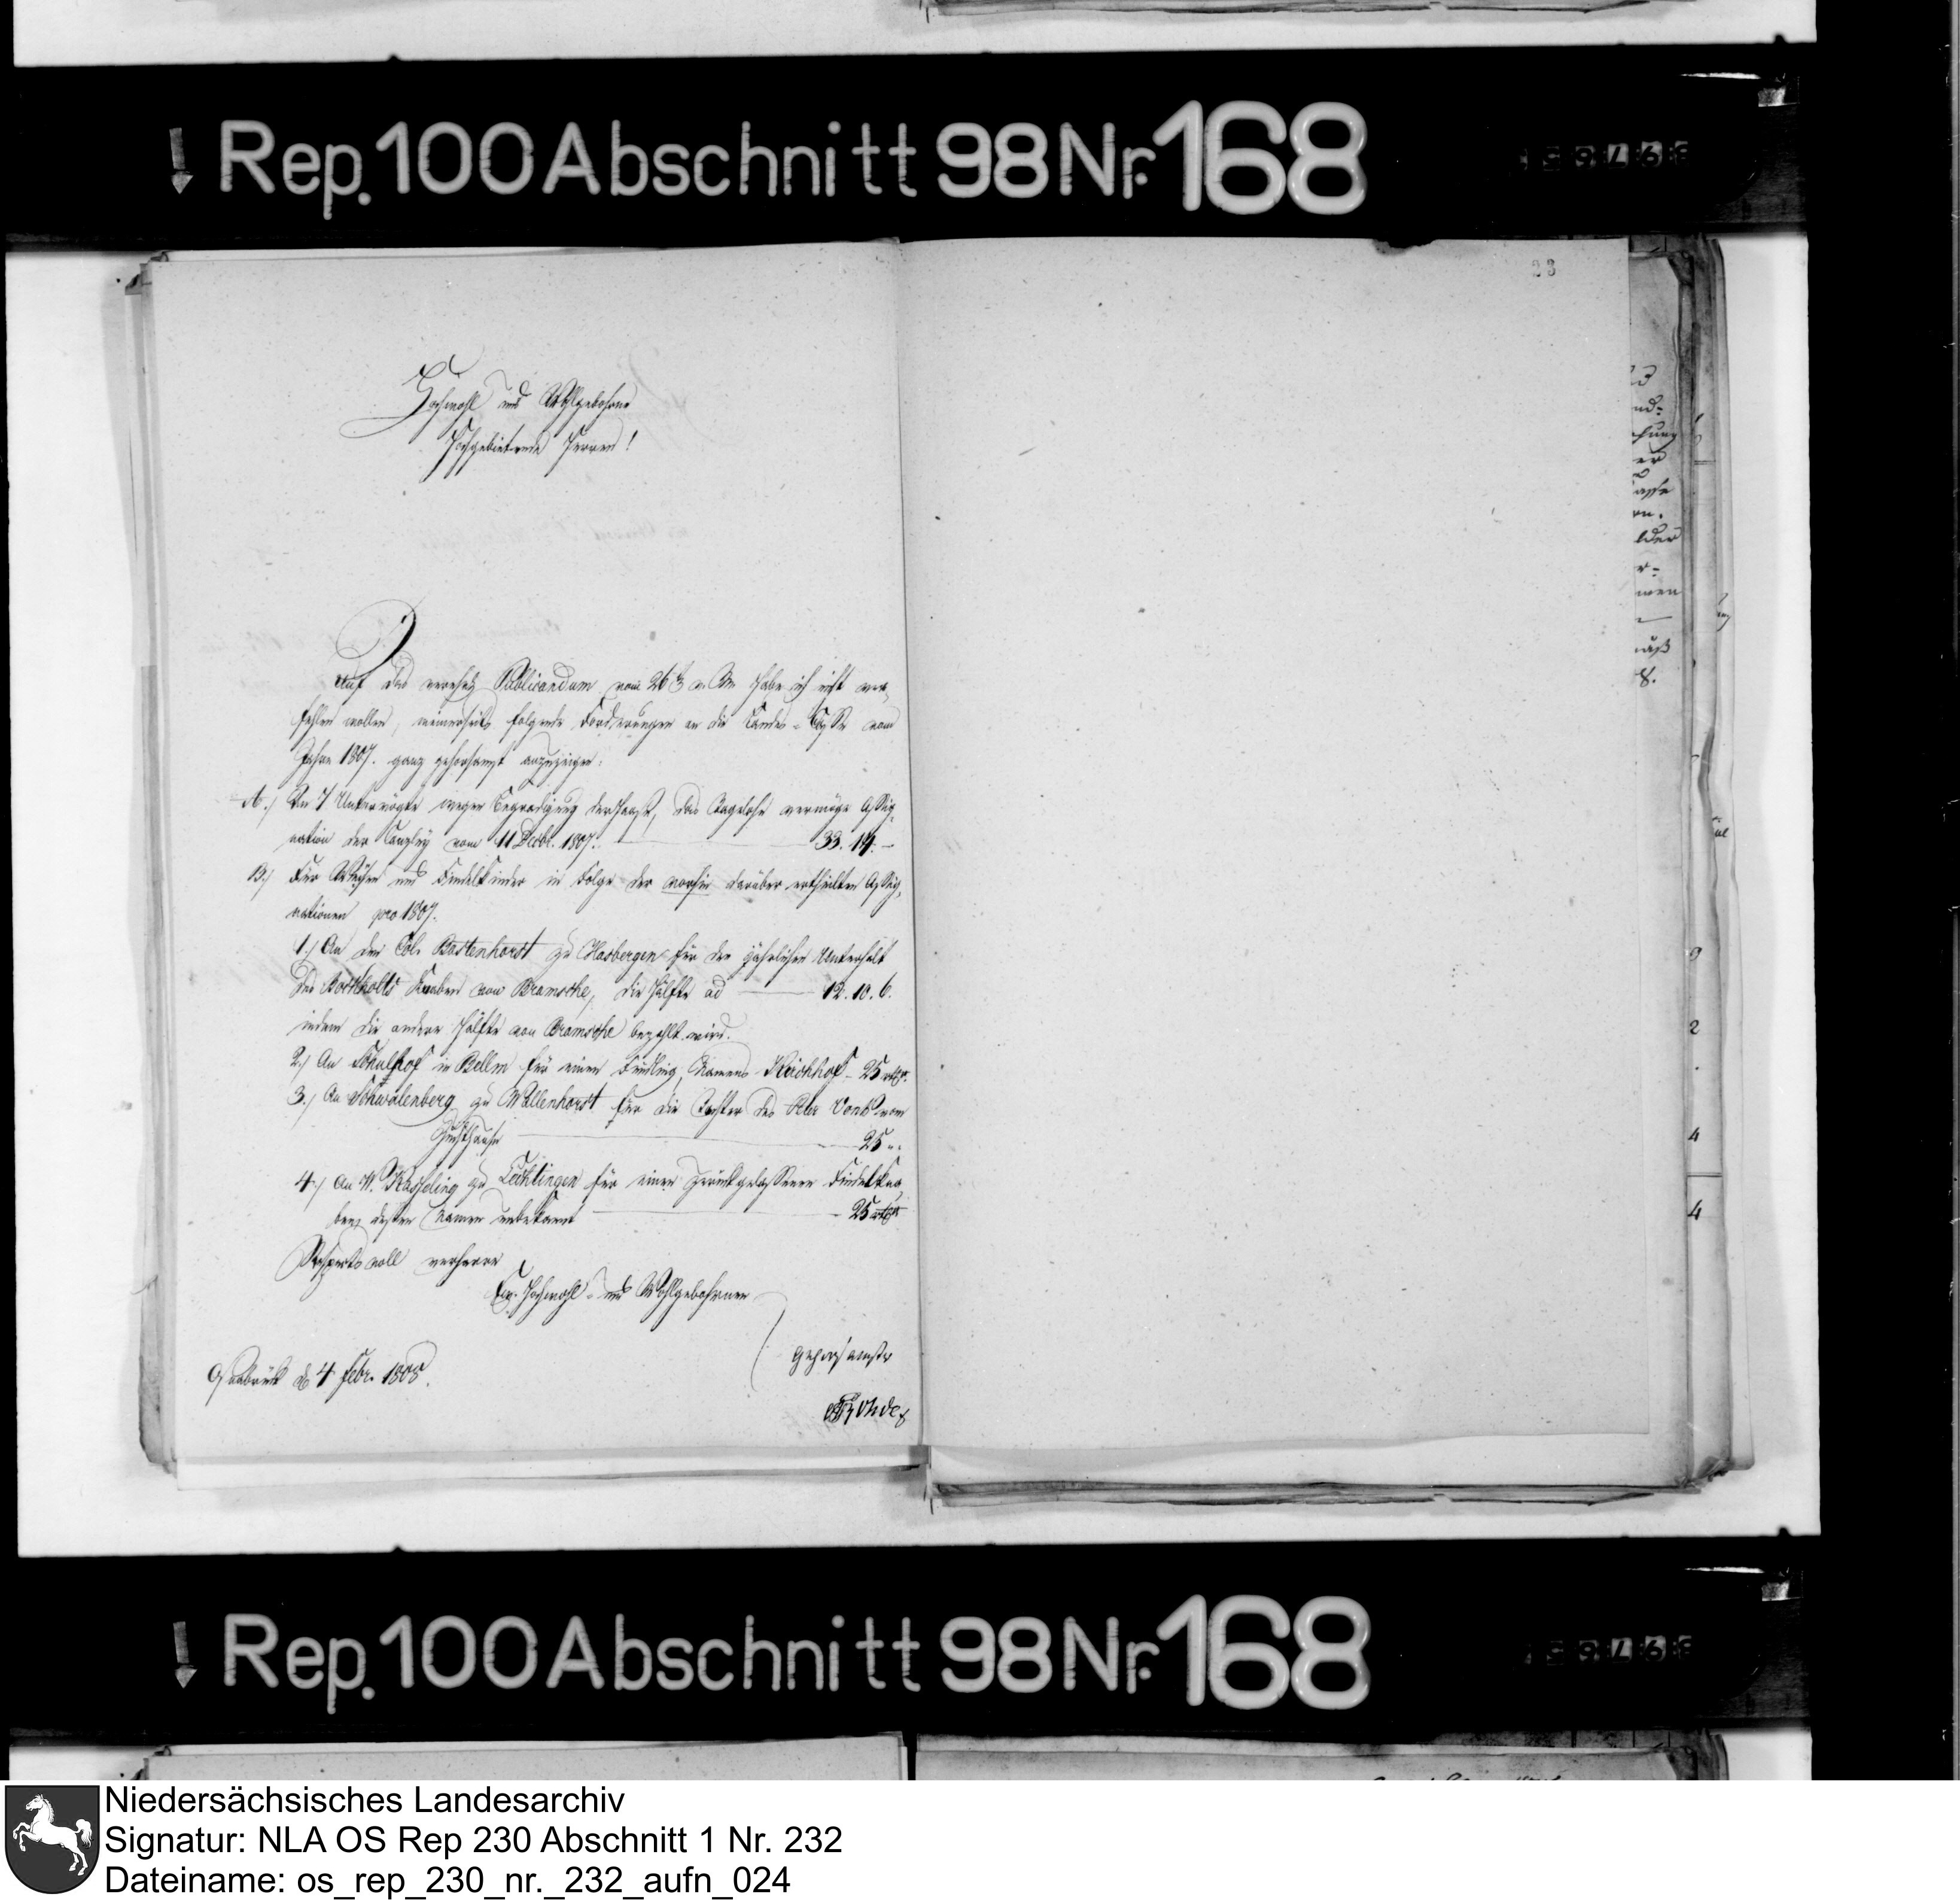 Rep. 100 Abschnitt 98 Nr. 168
23
Hochwohl und Wohlgebohrne
Hochgebietende Herren!
Auf das Publicandum vom 26ten v. M. habe ich nicht ver-
fehlen wollen, meinerseits folgende Forderungen an die Landes-Casse vom
Jahre 1807. ganz gehorsamst anzuzeigen:
A.) Den 7 Untervögte wegen der das Tagelohn vermöge Assig-
nation der Canzley vom 11 Decbr. 1807. 33. 14. -
B.) Für Waysen und Findelkinder in Folge der vorhin darüber ertheilten Assig-
nationen pro 1807.
1.) An den Col. Bostenhorst zu Hasbergen für den jährlichen Unterhalt
des Bockholts Knaben von Bramsche, die Hälfte ad 12. 10. 6.
indem die andere Hälfte von Bramsche bezahlt wird.
2.) An Schulhof in Bellm für einen Findling, Namens Kirchhof - 25 rthlr.
3.) An Schwalenberg zu Wallenhorst für die Tochter des Peter vom
Zuchthause 25 „
4.) An W. zu Lechtingen für einen zurückgelassenen Findelkna-
ben, dessen Namen unbekannt 25 rthlr
Respectsvoll verharre
Ew. Hochwohl- und Wohlgebohrnen
gehorsamster
Osnabrück d. 4 Febr. 1808.
Rep. 100 Abschnitt 98 Nr. 168
Niedersächsisches Landesarchiv
Signatur: NLA OS Rep 230 Abschnitt 1 Nr. 232
Dateiname: os_rep_230_nr._232_aufn_024